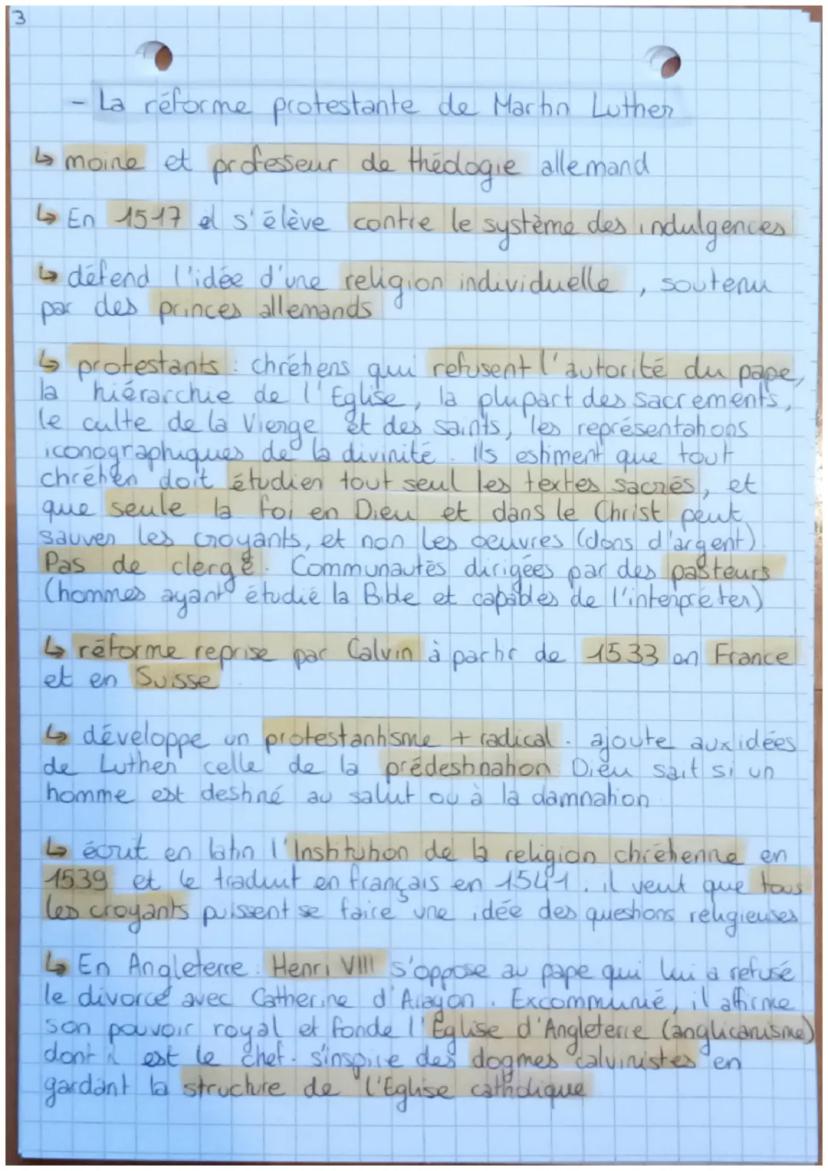 3
- La réforme protestante de Martin Luther
↳ moine et professeur de théologie allemand
↳ En 1517 il s'élève contre le système des indulgences
↳ défend l'idée d'une religion individuelle, soutenu
par des princes allemands
↳ protestants : chrétiens qui refusent l'autorité du pape,
la hiérarchie de l'Eglise, la plupart des sacrements,
le culte de la Vierge et des saints, les représentations
iconographiques de la divinité. Ils estiment que tout
chrétien doit étudier tout seul les textes sacrés, et
que seule la foi en Dieu et dans le Christ peut
sauver les croyants, et non les oeuvres (dons d'argent).
Pas de clergé. Communautés dirigées par des pasteurs
(hommes ayant étudié la Bible et capables de l'interpréter)
↳ réforme reprise par Calvin à partir de 1533 en France
et en Suisse
↳ développe un protestantisme + radical. ajoute aux idées
de Luther celle de la prédestination Dieu sait si un
homme est destiné au salut ou à la damnation
↳ écrit en latin l'Institution de la religion chrétienne en
1539 et le traduit en français en 1541. il veut que tous
les croyants puissent se faire une idée des questions religieuses
↳ En Angleterre. Henri VIII s'oppose au pape qui lui a refusé
le divorce avec Catherine d'Aragon. Excommunié, il affirme
son pouvoir royal et fonde l'Église d'Angleterre (anglicanisme)
dont il est le chef. s'inspire des dogmes calvinistes en
gardant la structure de l'Église catholique